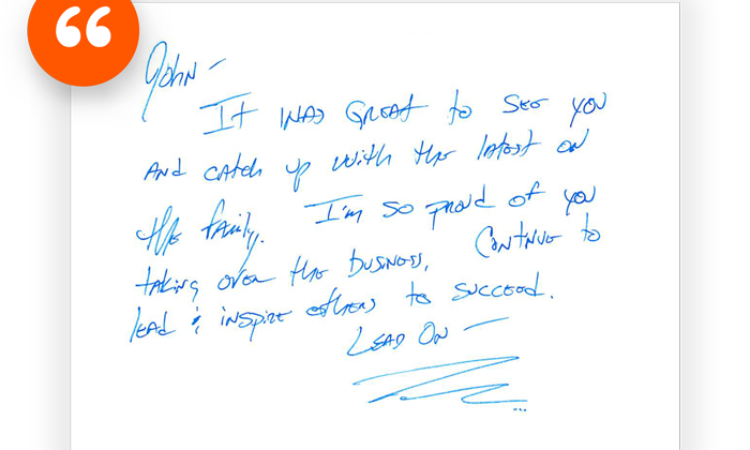 John -
It was great to see you
and catch up with the latest on
the family. I'm so proud of you
taking over the business. Continue to
lead & inspire others to succeed.
Lead On -